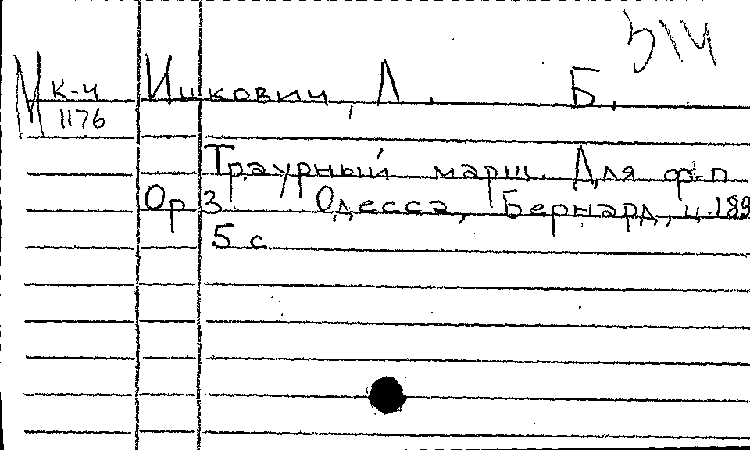 514
М к-ч Ицкович, Л. Б.
1176
Траурный марш. Для ф-п.
Ор 3 Одесса, Бернард, ц. 189
5 с